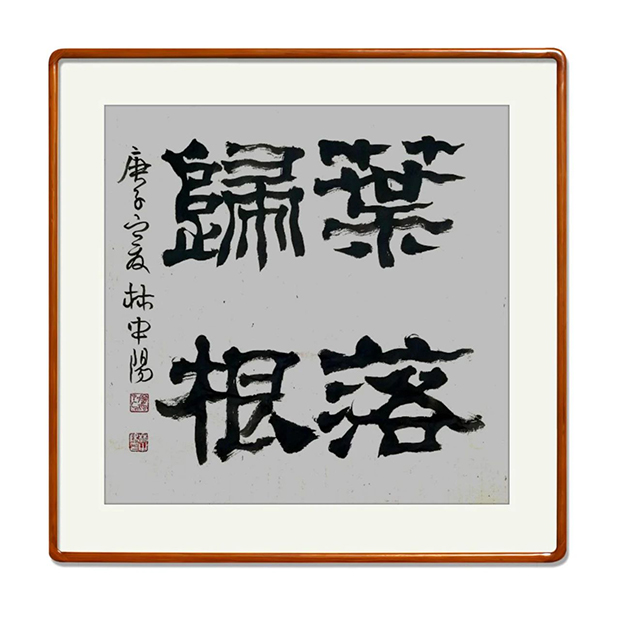 葉落
歸根
庚子夏林中陽